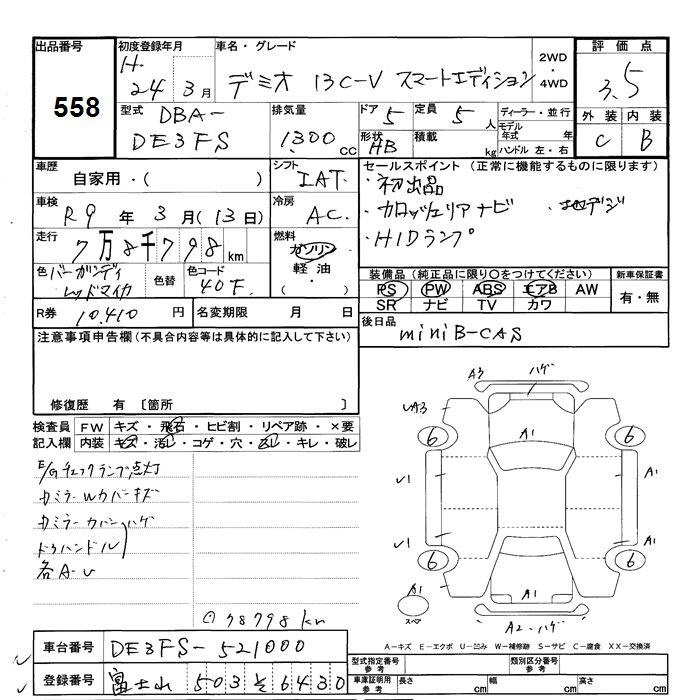 出品番号
558
初度登録年月
H-24 3月
車名・グレード
デミオ 13C-V スマートエディション
2WD
・
4WD
評価点
3.5
外装 内装
C B
型式 DBA-
DE3FS
排気量
1300 cc
ドア 5
定員 5 人
形状 HB
積載 kg
ディーラー・並行
モデル年式 年
ハンドル 左・右
車歴
自家用・( )
シフト
IAT
車検
R9 年 3月(13日)
冷房
AC
走行
7万8千798 km
燃料
ガソリン
軽油
・( )
色 バーガンディ
レッドマイカ
色替
色コード
40F
R券 10,410 円
名変期限 月 日
セールスポイント(正常に機能するものに限ります)
・初出品
・カロッツェリアナビ ・地デジ
・HIDランプ
装備品(純正品に限り○をつけてください)
PS PW ABS エアB AW
SR ナビ TV カワ
新車保証書
有・無
後日品
miniB-CAS
注意事項申告欄(不具合内容等は具体的に記入して下さい)
修復歴 有 〔箇所 〕
検査員記入欄
FW キズ・飛石・ヒビ割・リペア跡・×要
内装 キズ・汚レ・コゲ・穴・スレ・キレ・破レ
E/Gチェックランプ点灯
カミラーWカバーキズ
カミラーカバーハゲ
ドアハンドル
各A-U
○78798km
A3 ハゲ
UA3
A1
6 6
U1 A1
U1 A1
6 6
A1 A1
スペア
A2-ハゲ
A-キズ E-エクボ U-凹み W-補修跡 S-サビ C-腐食 XX-交換済
車台番号 DE3FS-521000
登録番号 富士山 503 6430
型式指定番号
参考
類別区分番号
参考
車庫証明用
参考
長さ cm 幅 cm 高さ cm